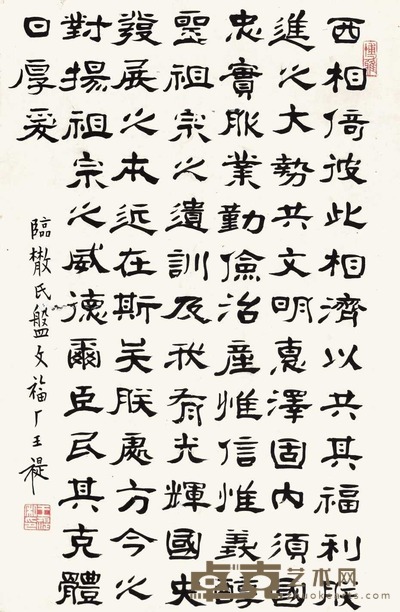 西相倚彼此相濟以共其福利朕
進之大勢共文明惠澤固內須國
忠實服業勤儉治產惟信惟義醇
聖祖宗之遺訓及我有光輝國史
發展之本近在斯矣朕處方今之
對揚祖宗之威德爾臣民其克體
日厚爰
臨散氏盤文福厂王禔
艺术网